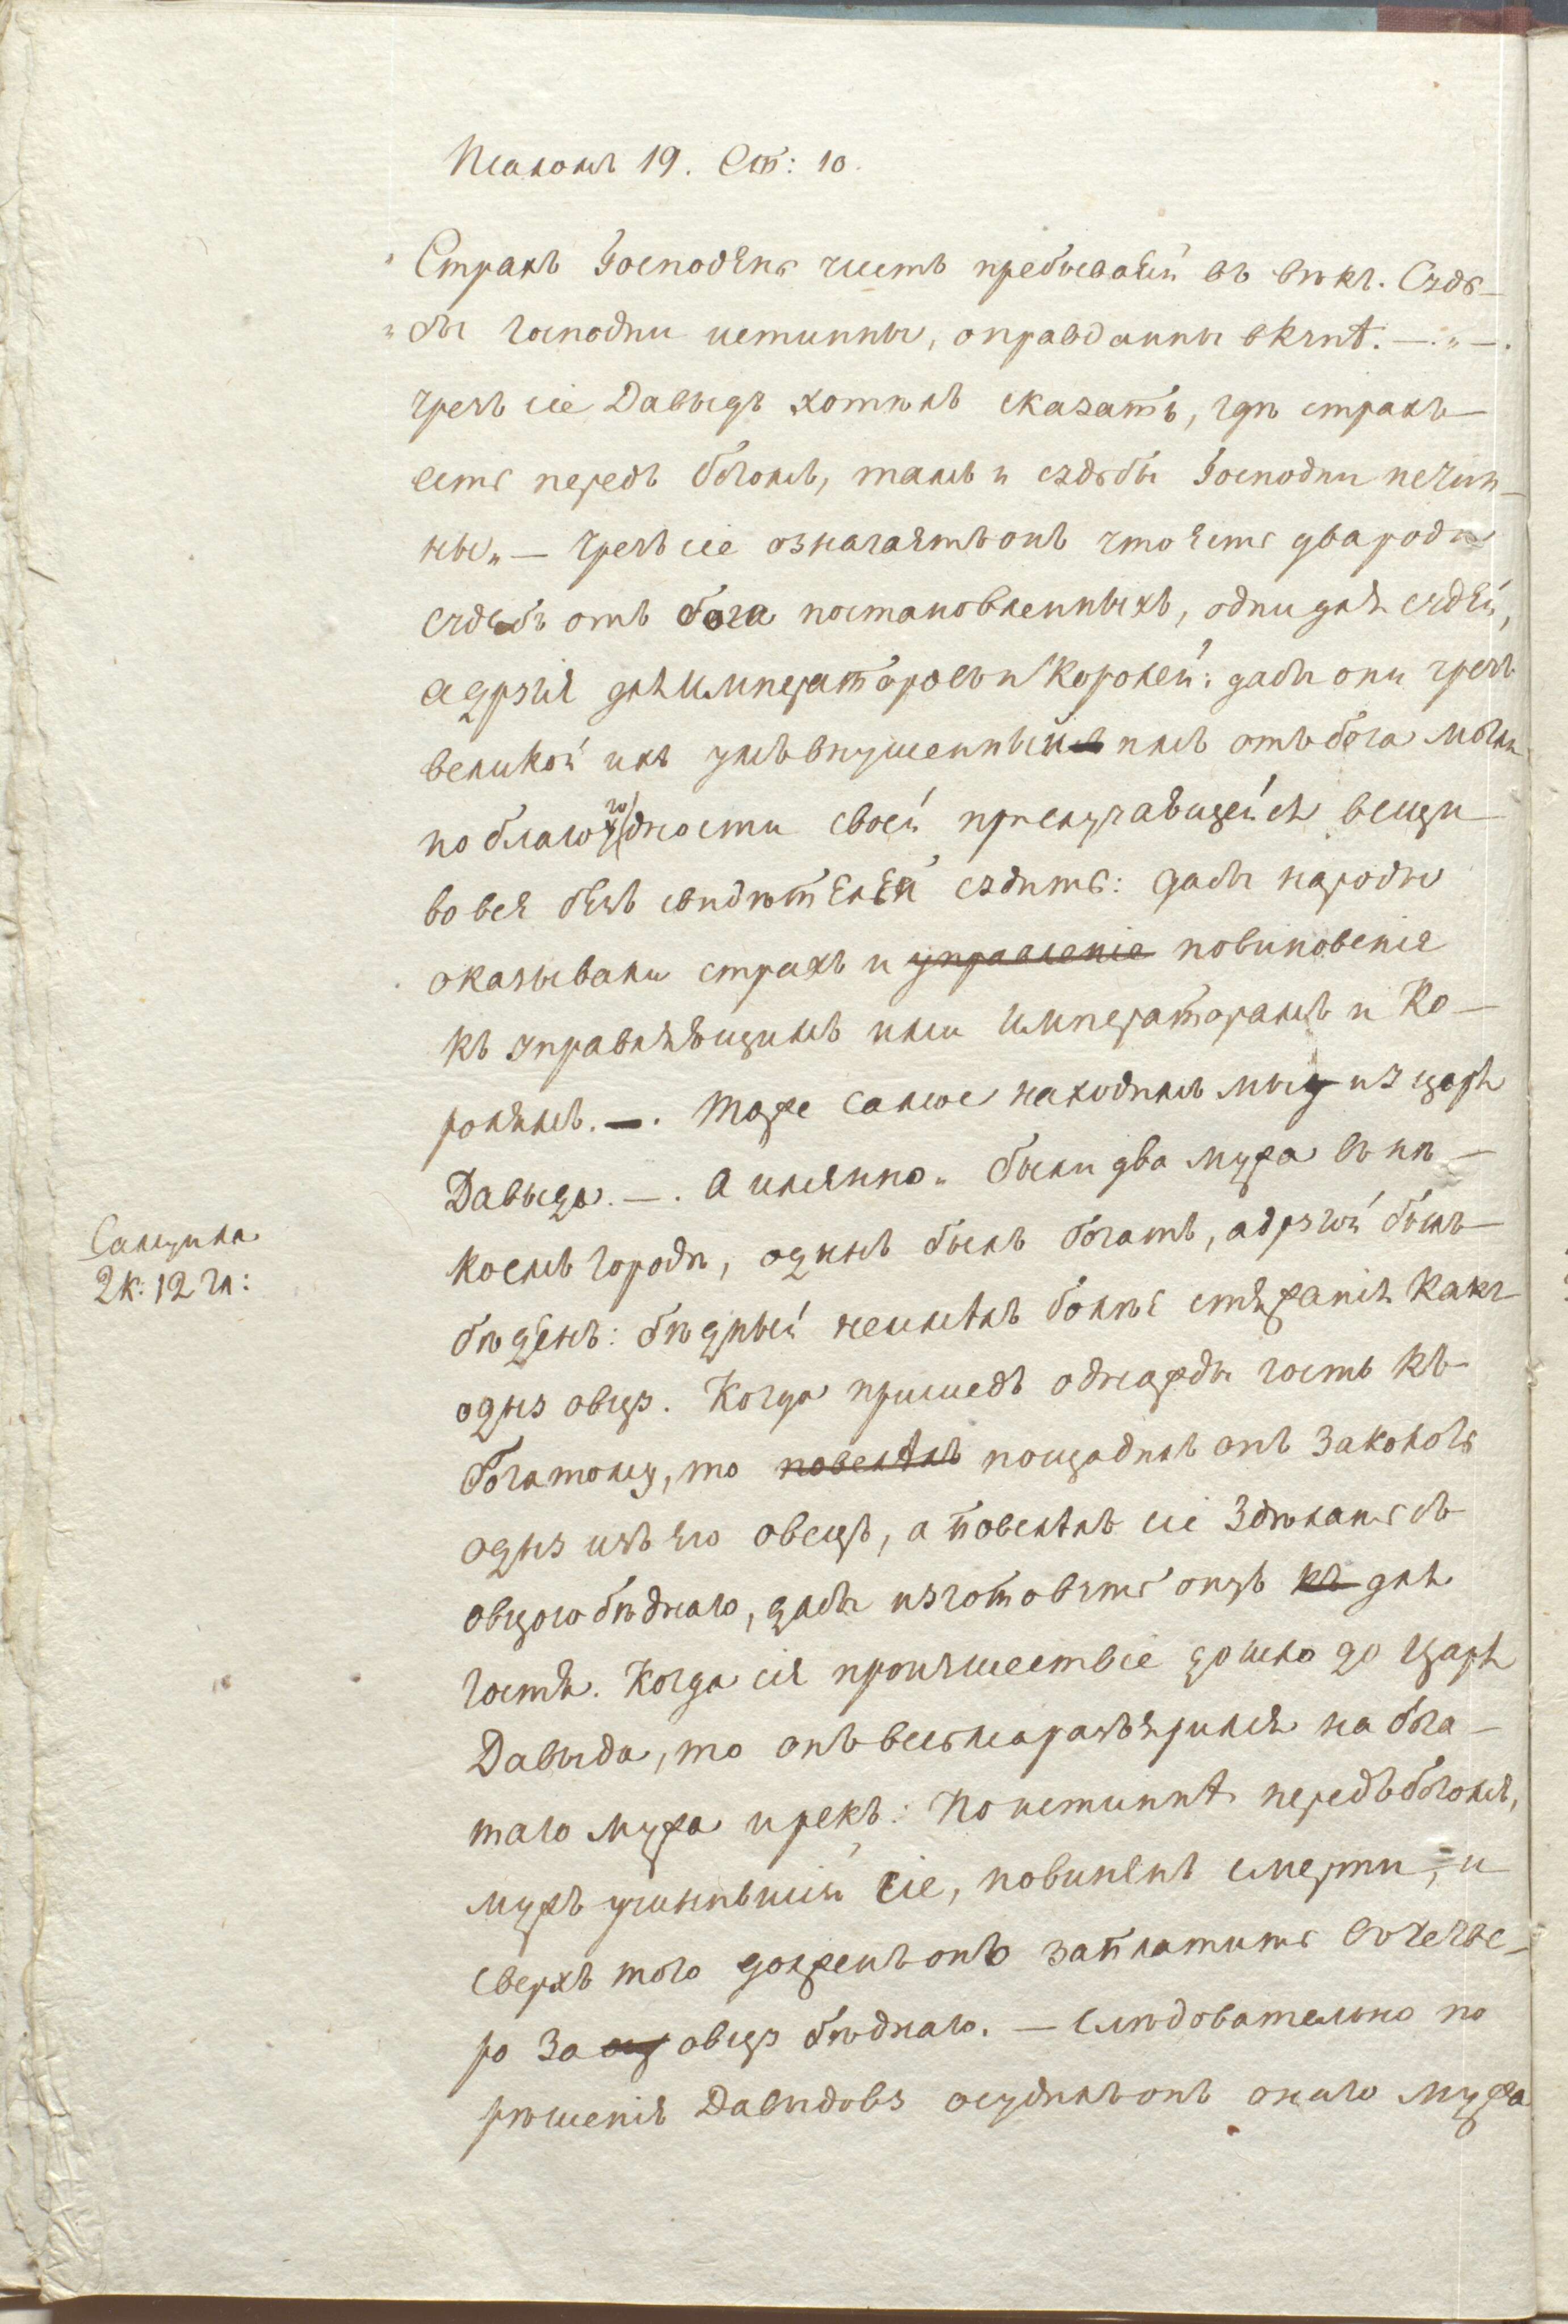 Псаломъ 19. Ст: 10.
"Страхъ Господень чистъ пребываяй въ вѣкъ. Судь-
"бы Господни истинны, оправданны вкупѣ. —. „ —.
чрезъ сіе Давыдъ хотѣлъ сказать, гдѣ страхъ
есть передъ богомъ, тамъ и судьбы Господни истин-
ны„ — чрезъ сіе означаетъ онъ что есть два рода
судебъ отъ бога постановленныхъ, одни для судей,
а другія для Императоровъ и Королей: дабы они чрезъ
великой ихъ умъ внушенный имъ отъ бога могли
по благоугодности своей прилучающейся вещи
во вся безъ свидѣтелей судить: дабы народы
оказывали страхъ и управленіе повиновенія
къ управляющимъ ими Императорамъ и Ко-
ролямъ. —. Тоже самое находимъ мы у изъ царя
Давыда. —. А имянно„ были два мужа въ нѣ-
коемъ городѣ, одинъ былъ богатъ, а другой былъ
Самуила
2 к: 12 гл:
бѣденъ: бѣдный неимѣлъ болѣе стяжанія какъ
одну овцу. Когда пришедъ однажды гость къ
богатому, то повелѣлъ пощадилъ онъ заколоть
одну изъ его овецъ, а повелѣлъ сіе здѣлать съ
овцою бѣднаго, дабы изготовить онуъ къ для
гостя. Когда сія произшествіе дошло до Царя
Давыда, то онъ весьма разъярился на бога-
таго мужа и рекъ: Поистиннѣ передъ богомъ,
мужъ учинившій сіе, повиненъ смерти, и
сверхъ того долженъ онъ заплатить вчетве-
ро за ову овцу бѣднаго. — Слѣдовательно по
рѣшенія Давыдову осудилъ онъ онаго мужа